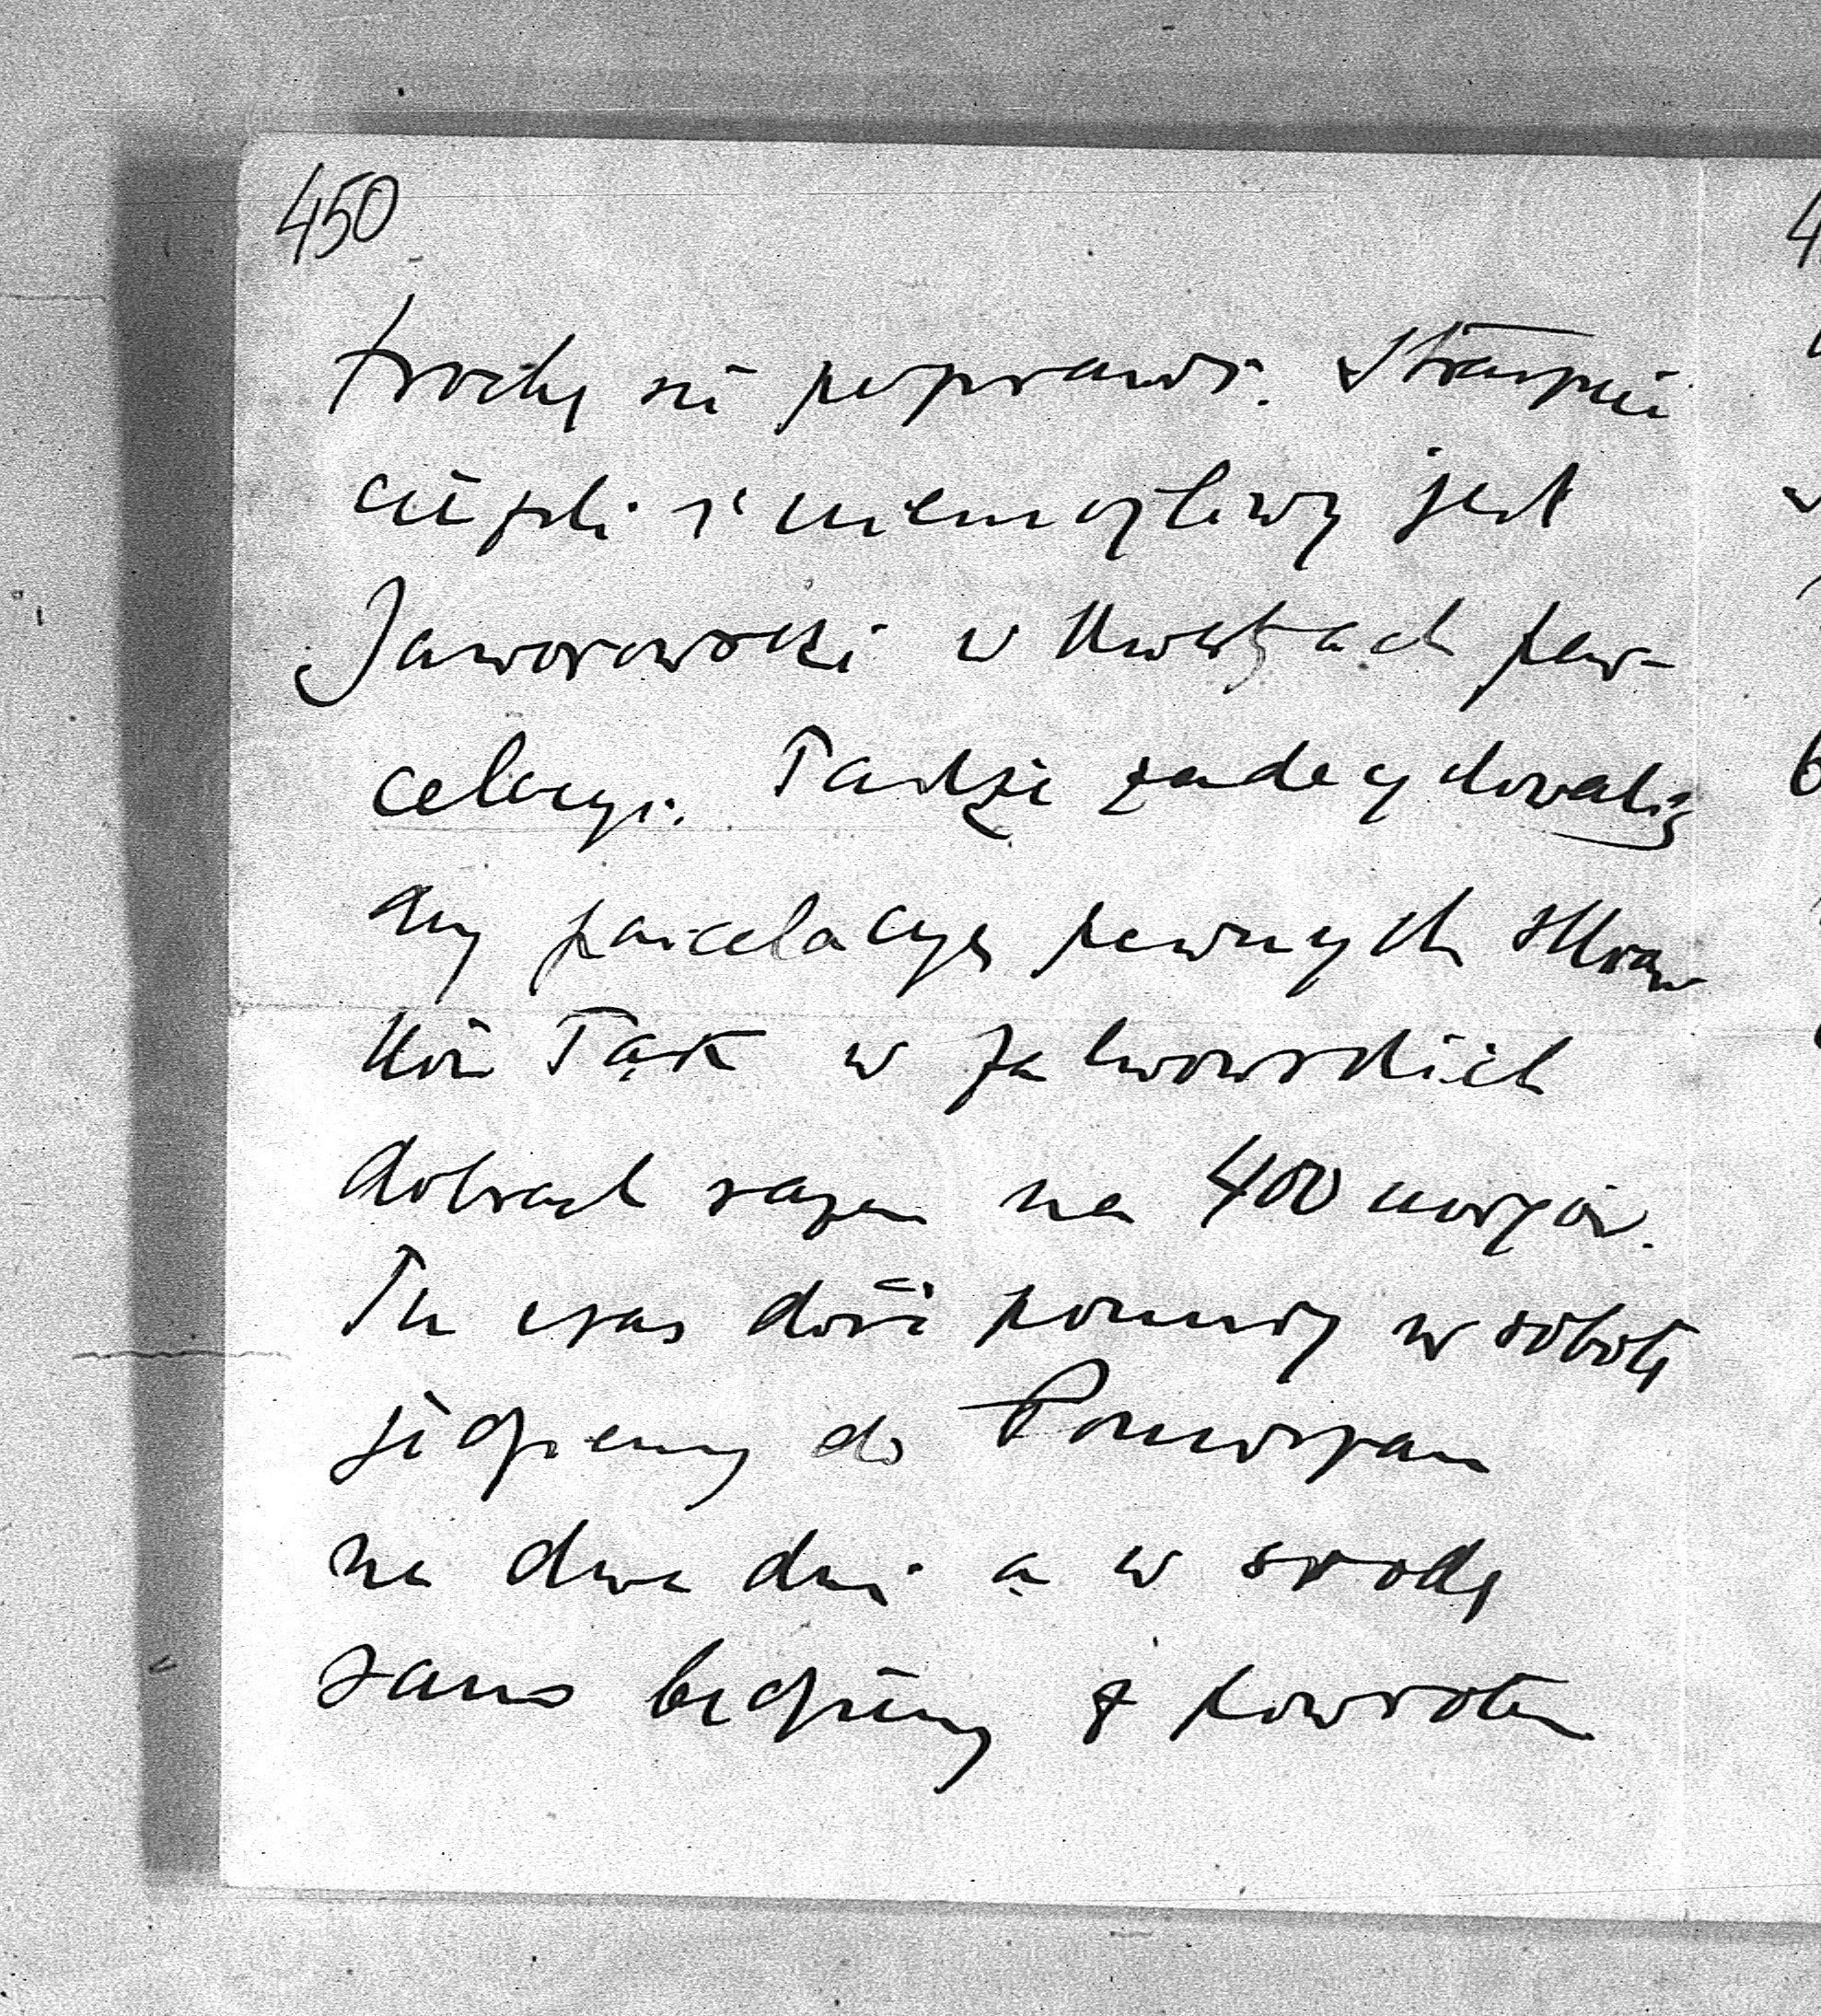 450
trochę się poprawi. Strasznie
ciężki i niemożliwy jest
Jaworowski w kwestjach par-
celacyi. Także zadecydowaliś
my parcelacyę pewnych skraw
ków łąk w zalwowskich
dobrach razem na 400 morgów.
Tu czas dość ponury w sobotę
jedziemy do Pomorzan
na dwa dni a w srodę
rano będziemy z powrotem